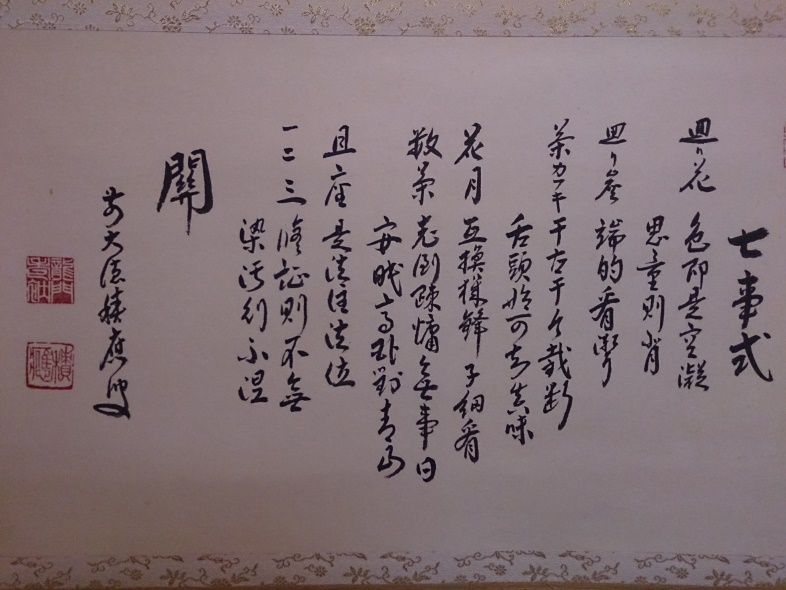 七事式
廻り花 色即是空凝
思量則背
廻り炭 端的看聻
茶カフキ 千古千今截断
舌頭始可知真味
花月 互換機鋒子細看
数茶 老倒疎慵無事日
安眠高臥対青山
且座 是法住法位
一二三 修証則不無
染汚則不得
關
前大徳